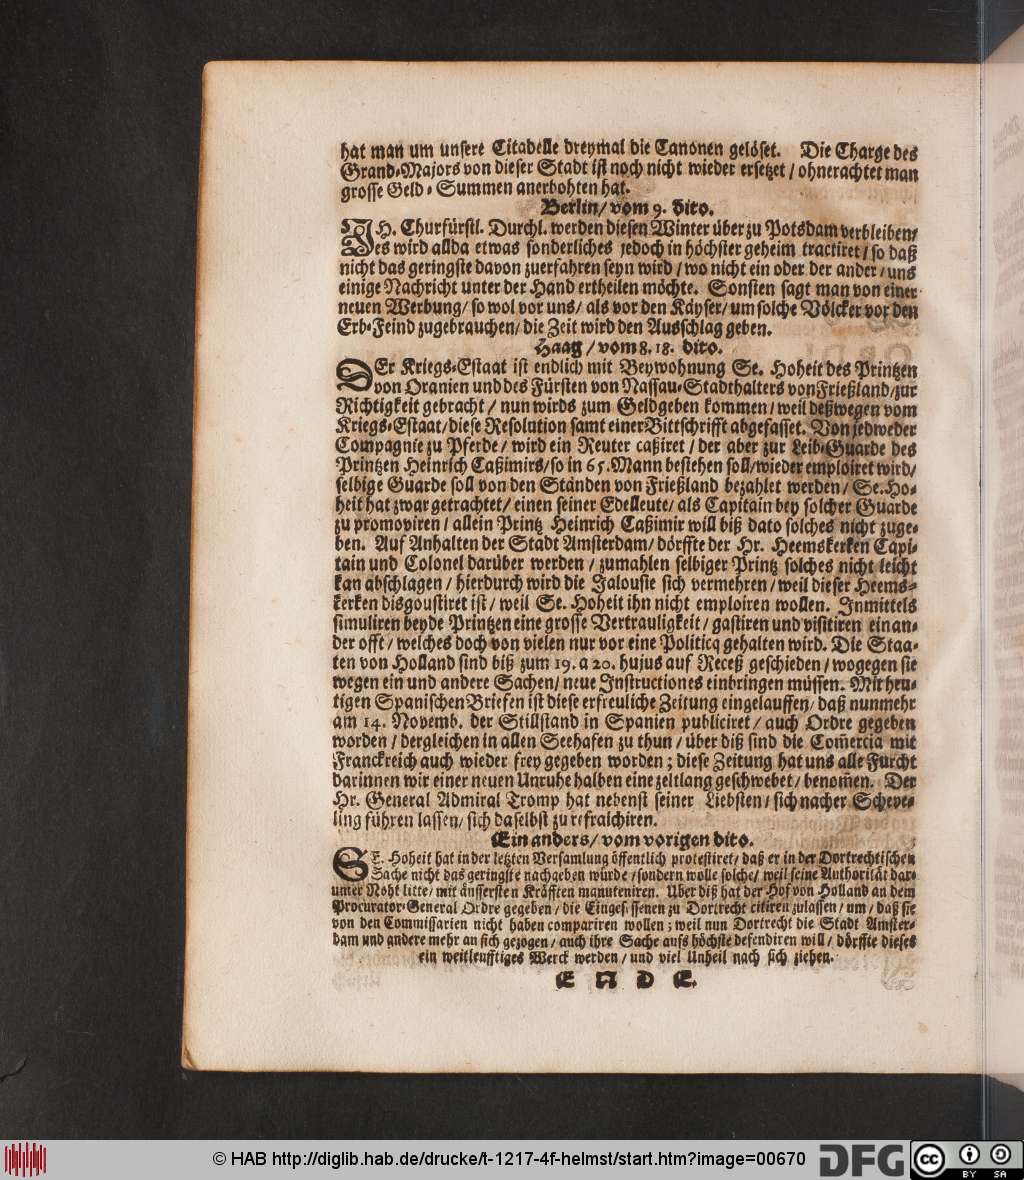 hat man um unsere Citadelle dreymal die Canonen gelöset. Die Charge des
Grand-Majors von dieser Stadt ist noch nicht wieder ersetzet / ohnerachtet man
grosse Geld-Summen anerbohten hat.
Berlin / vom 9. dito.
JH. Churfürstl. Durchl. werden diesen Winter über zu Potsdam verbleiben /
es wird allda etwas sonderliches jedoch in höchster geheim tractiret / so daß
nicht das geringste davon zuerfahren seyn wird / wo nicht ein oder der ander / uns
einige Nachricht unter der Hand ertheilen möchte. Sonsten sagt man von einer
neuen Werbung / so wol vor uns / als vor den Käyser / um solche Völcker vor den
Erb-Feind zugebrauchen / die Zeit wird den Ausschlag geben.
Haag / vom 8. 18. dito.
DEr Kriegs-Estaat ist endlich mit Beywohnung Se. Hoheit des Printzen
von Oranien und des Fürsten von Nassau-Stadthalters von Frießland / zur
Richtigkeit gebracht / nun wirds zum Geldgeben kommen / weil deßwegen vom
Kriegs-Estaat / diese Resolution samt einer Bittschrifft abgefasset. Von jedweder
Compagnie zu Pferde / wird ein Reuter caßiret / der aber zur Leib-Guarde des
Printzen Heinrich Caßimirs / so in 65. Mann bestehen soll / wieder emploiret wird /
selbige Guarde soll von den Ständen von Frießland bezahlet werden / Se. Ho-
heit hat zwar getrachtet / einen seiner Edelleute / als Capitain bey solcher Guarde
zu promoviren / allein Printz Heinrich Caßimir will biß dato solches nicht zuge-
ben. Auf Anhalten der Stadt Amsterdam / dörffte der Hr. Heemskerken Capi-
tain und Colonel darüber werden / zumahlen selbiger Printz solches nicht leicht
kan abschlagen / hierdurch wird die Jalousie sich vermehren / weil dieser Heems-
kerken disgoustiret ist / weil Se. Hoheit ihn nicht emploiren wollen. Inmittels
simuliren beyde Printzen eine grosse Vertrauligkeit / gastiren und visitiren einan-
der offt / welches doch von vielen nur vor eine Politicq gehalten wird. Die Staa-
ten von Holland sind biß zum 19. a 20. hujus auf Receß geschieden / wogegen sie
wegen ein und andere Sachen / neue Instructiones einbringen müssen. Mit heu-
tigen Spanischen Briefen ist diese erfreuliche Zeitung eingelauffen / daß nunmehr
am 14. Novemb. der Stillstand in Spanien publiciret / auch Ordre gegeben
worden / dergleichen in allen Seehafen zu thun / über diß sind die Com̃ercia mit
Franckreich auch wieder frey gegeben worden ; diese Zeitung hat uns alle Furcht
darinnen wir einer neuen Unruhe halben eine zeitlang geschwebet / benom̃en. Der
Hr. General Admiral Tromp hat nebenst seiner Liebsten / sich nacher Scheve-
ling führen lassen / sich daselbst zu refraichiren.
Ein anders / vom vorigen dito.
SE. Hoheit hat in der letzten Versamlung öffentlich protestiret / daß er in der Dortrechtischen
Sache nicht das geringste nachgeben würde / sondern wolle solche / weil seine Authorität dar-
unter Noht litte / mit äusserstenKräfften manuteniren. Uber diß hat der Hof von Holland an dem
Procurator-General Ordre gegeben / die Eingesessenen zu Dortrecht citiren zulassen / um / daß sie
von den Commissarien nicht haben compariren wollen ; weil nun Dortrecht die Stadt Amster-
dam und andere mehr an sich gezogen / auch ihre Sache aufs höchste defendiren will / dörffte dieses
ein weitleufftiges Werck werden / und viel Unheil nach sich ziehen.
E N D E.
© HAB http://diglib.hab.de/drucke/t-1217-4f-helmst/start.htm?image=00670
DFG
cc BY SA